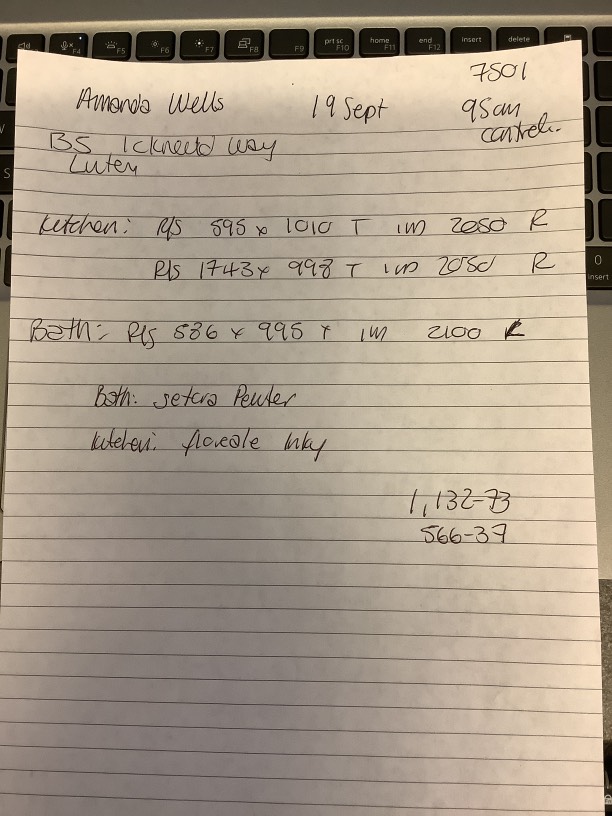 7501
Amanda Wells 19 Sept 95cm
control.
35 Icknield Way
Luton
Kitchen: R/S 595 x 1010 T IM 2050 R
R/S 1743 x 998 T IM 2050 R
Bath: R/S 536 x 995 T IM 2100 R
Bath: setora Pewter
Kitchen: floreale Inky
1,132-73
566-37
F4 F5 F6 F7 F8 F9 prt sc F10 home F11 end F12 insert delete
0
insert